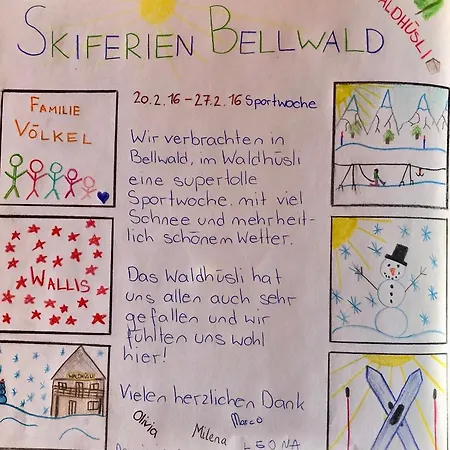 SKIFERIEN BELLWALD
WALDHÜSLI
20.2.16 – 27.2.16 Sportwoche
FAMILIE
VÖLKEL
Wir verbrachten in
Bellwald, im Waldhüsli
eine supertolle
Sportwoche. mit viel
Schnee und mehrheit-
lich schönem Wetter.
WALLIS
Das Waldhüsli hat
uns allen auch sehr
gefallen und wir
fühlten uns wohl
hier!
WALDHÜSLI
Vielen herzlichen Dank
Olivia
Milena
Marco
LEONA